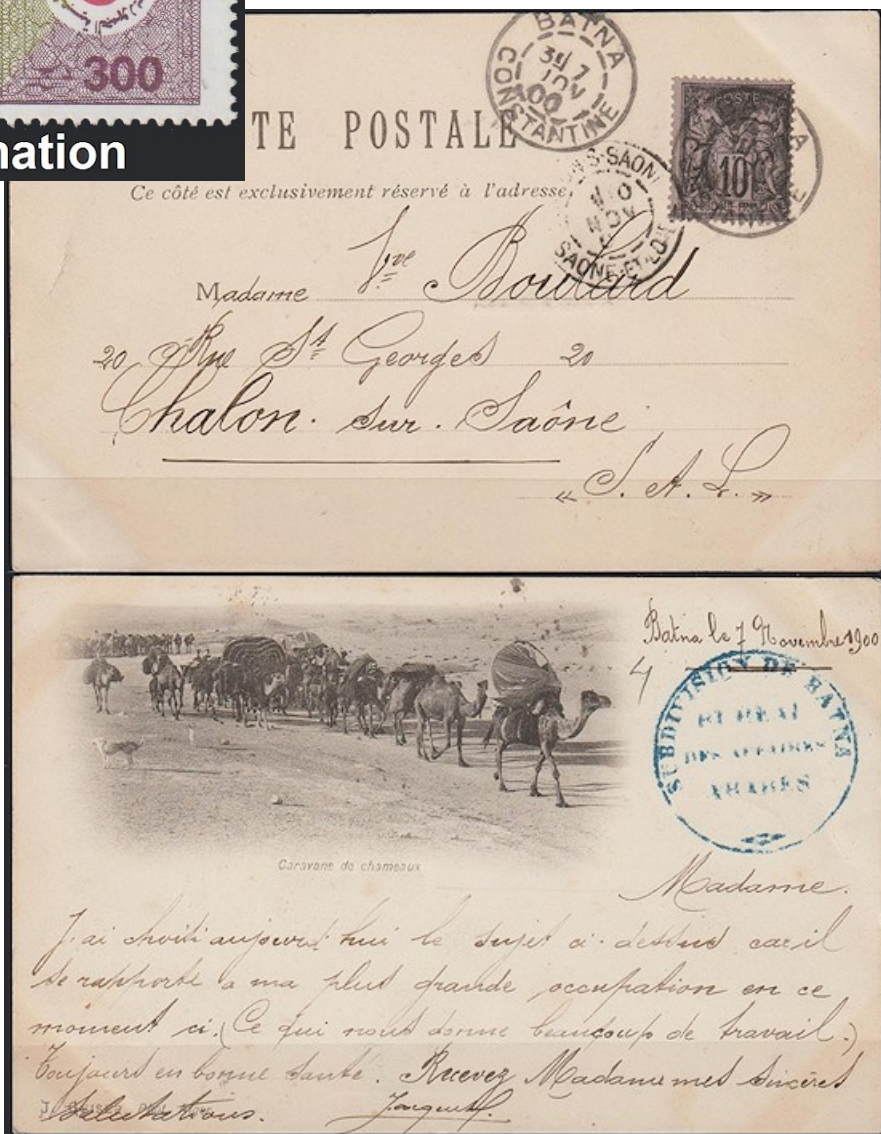 300
mation
TE POSTALE
BATNA
7
NOV
00
CONSTANTINE
Ce côté est exclusivement réservé à l'adresse.
POSTE
10
S-SAON
10
NOV
SAONE-ET-LOIRE
Madame Vve Boulard
20 Rue St Georges 20
Chalon. sur. Saône
« S. et. L. »
Batna le 7 Novembre 1900
SUBDIVISION DE BATNA
BUREAU
DES AFFAIRES
ARABES
Caravane de chameaux
Madame.
J'ai choiti aujourd hui le sujet ci-dessus car il
se rapporte a ma plus grande occupation en ce
moment ci. (Ce qui nous donne beaucoup de travail.)
Toujours en bonne santé. Recevez Madame mes sincères
Salutations.